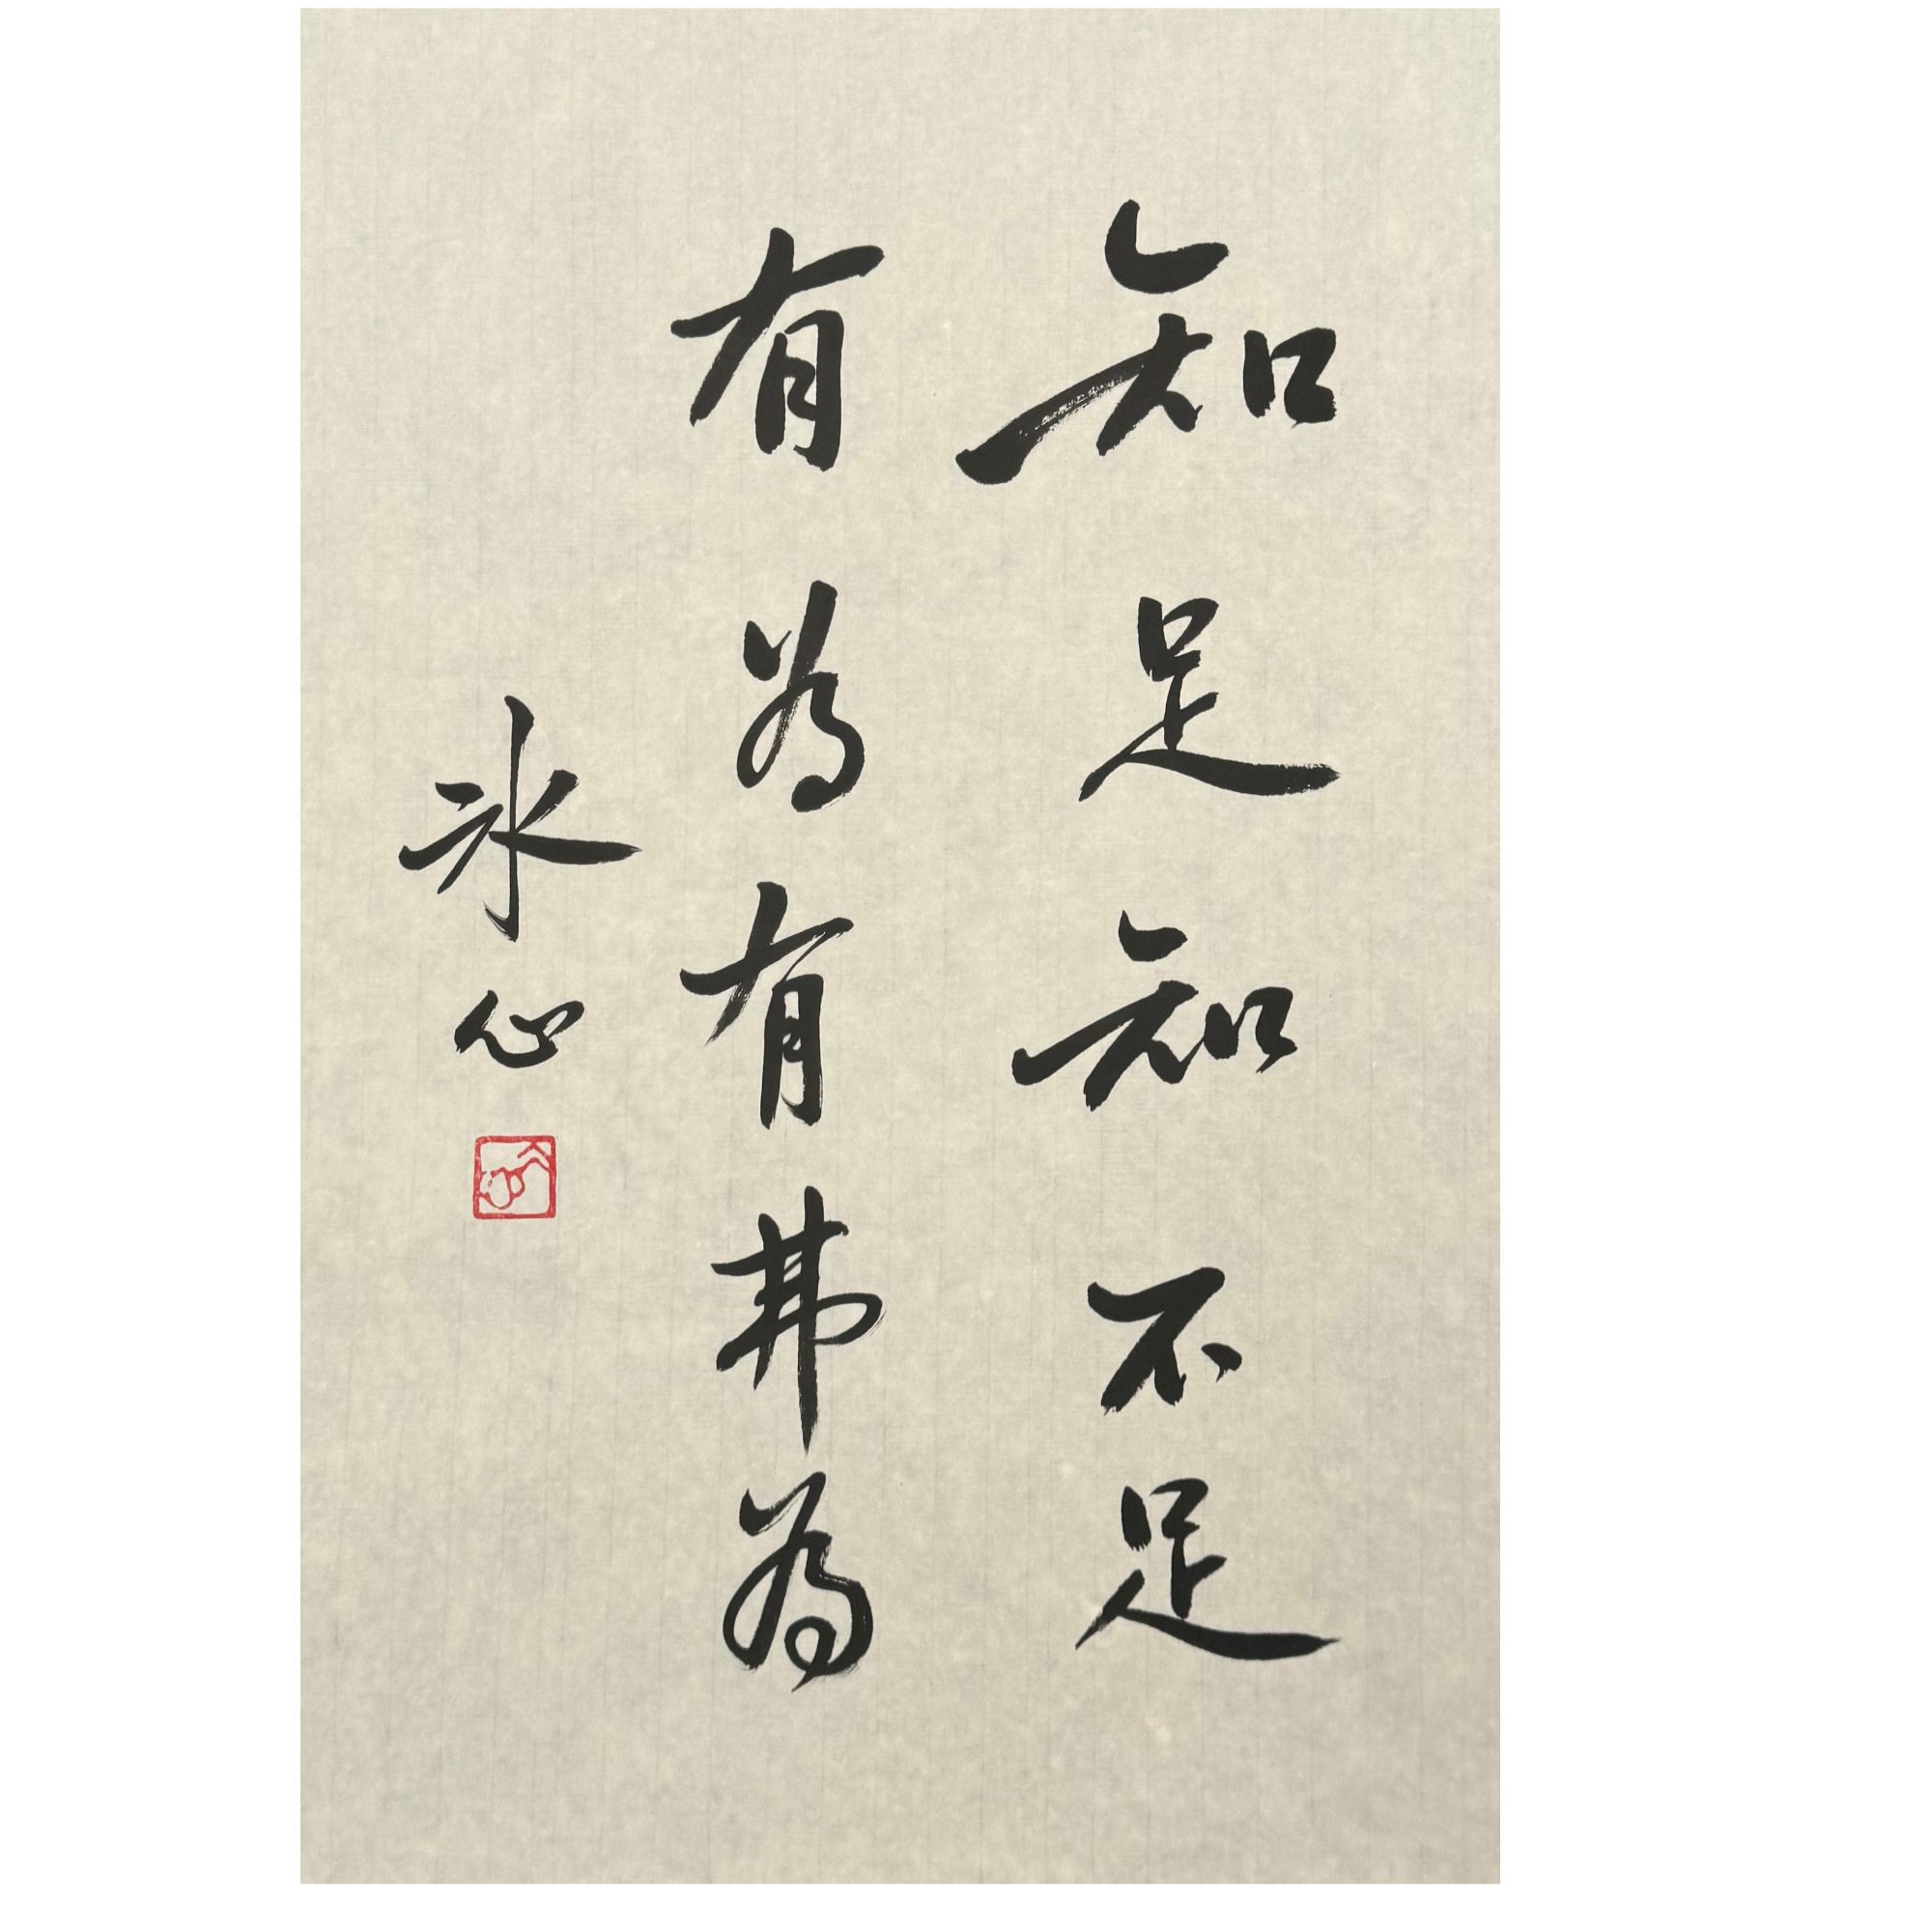 知足知不足
有為有弗為
冰心